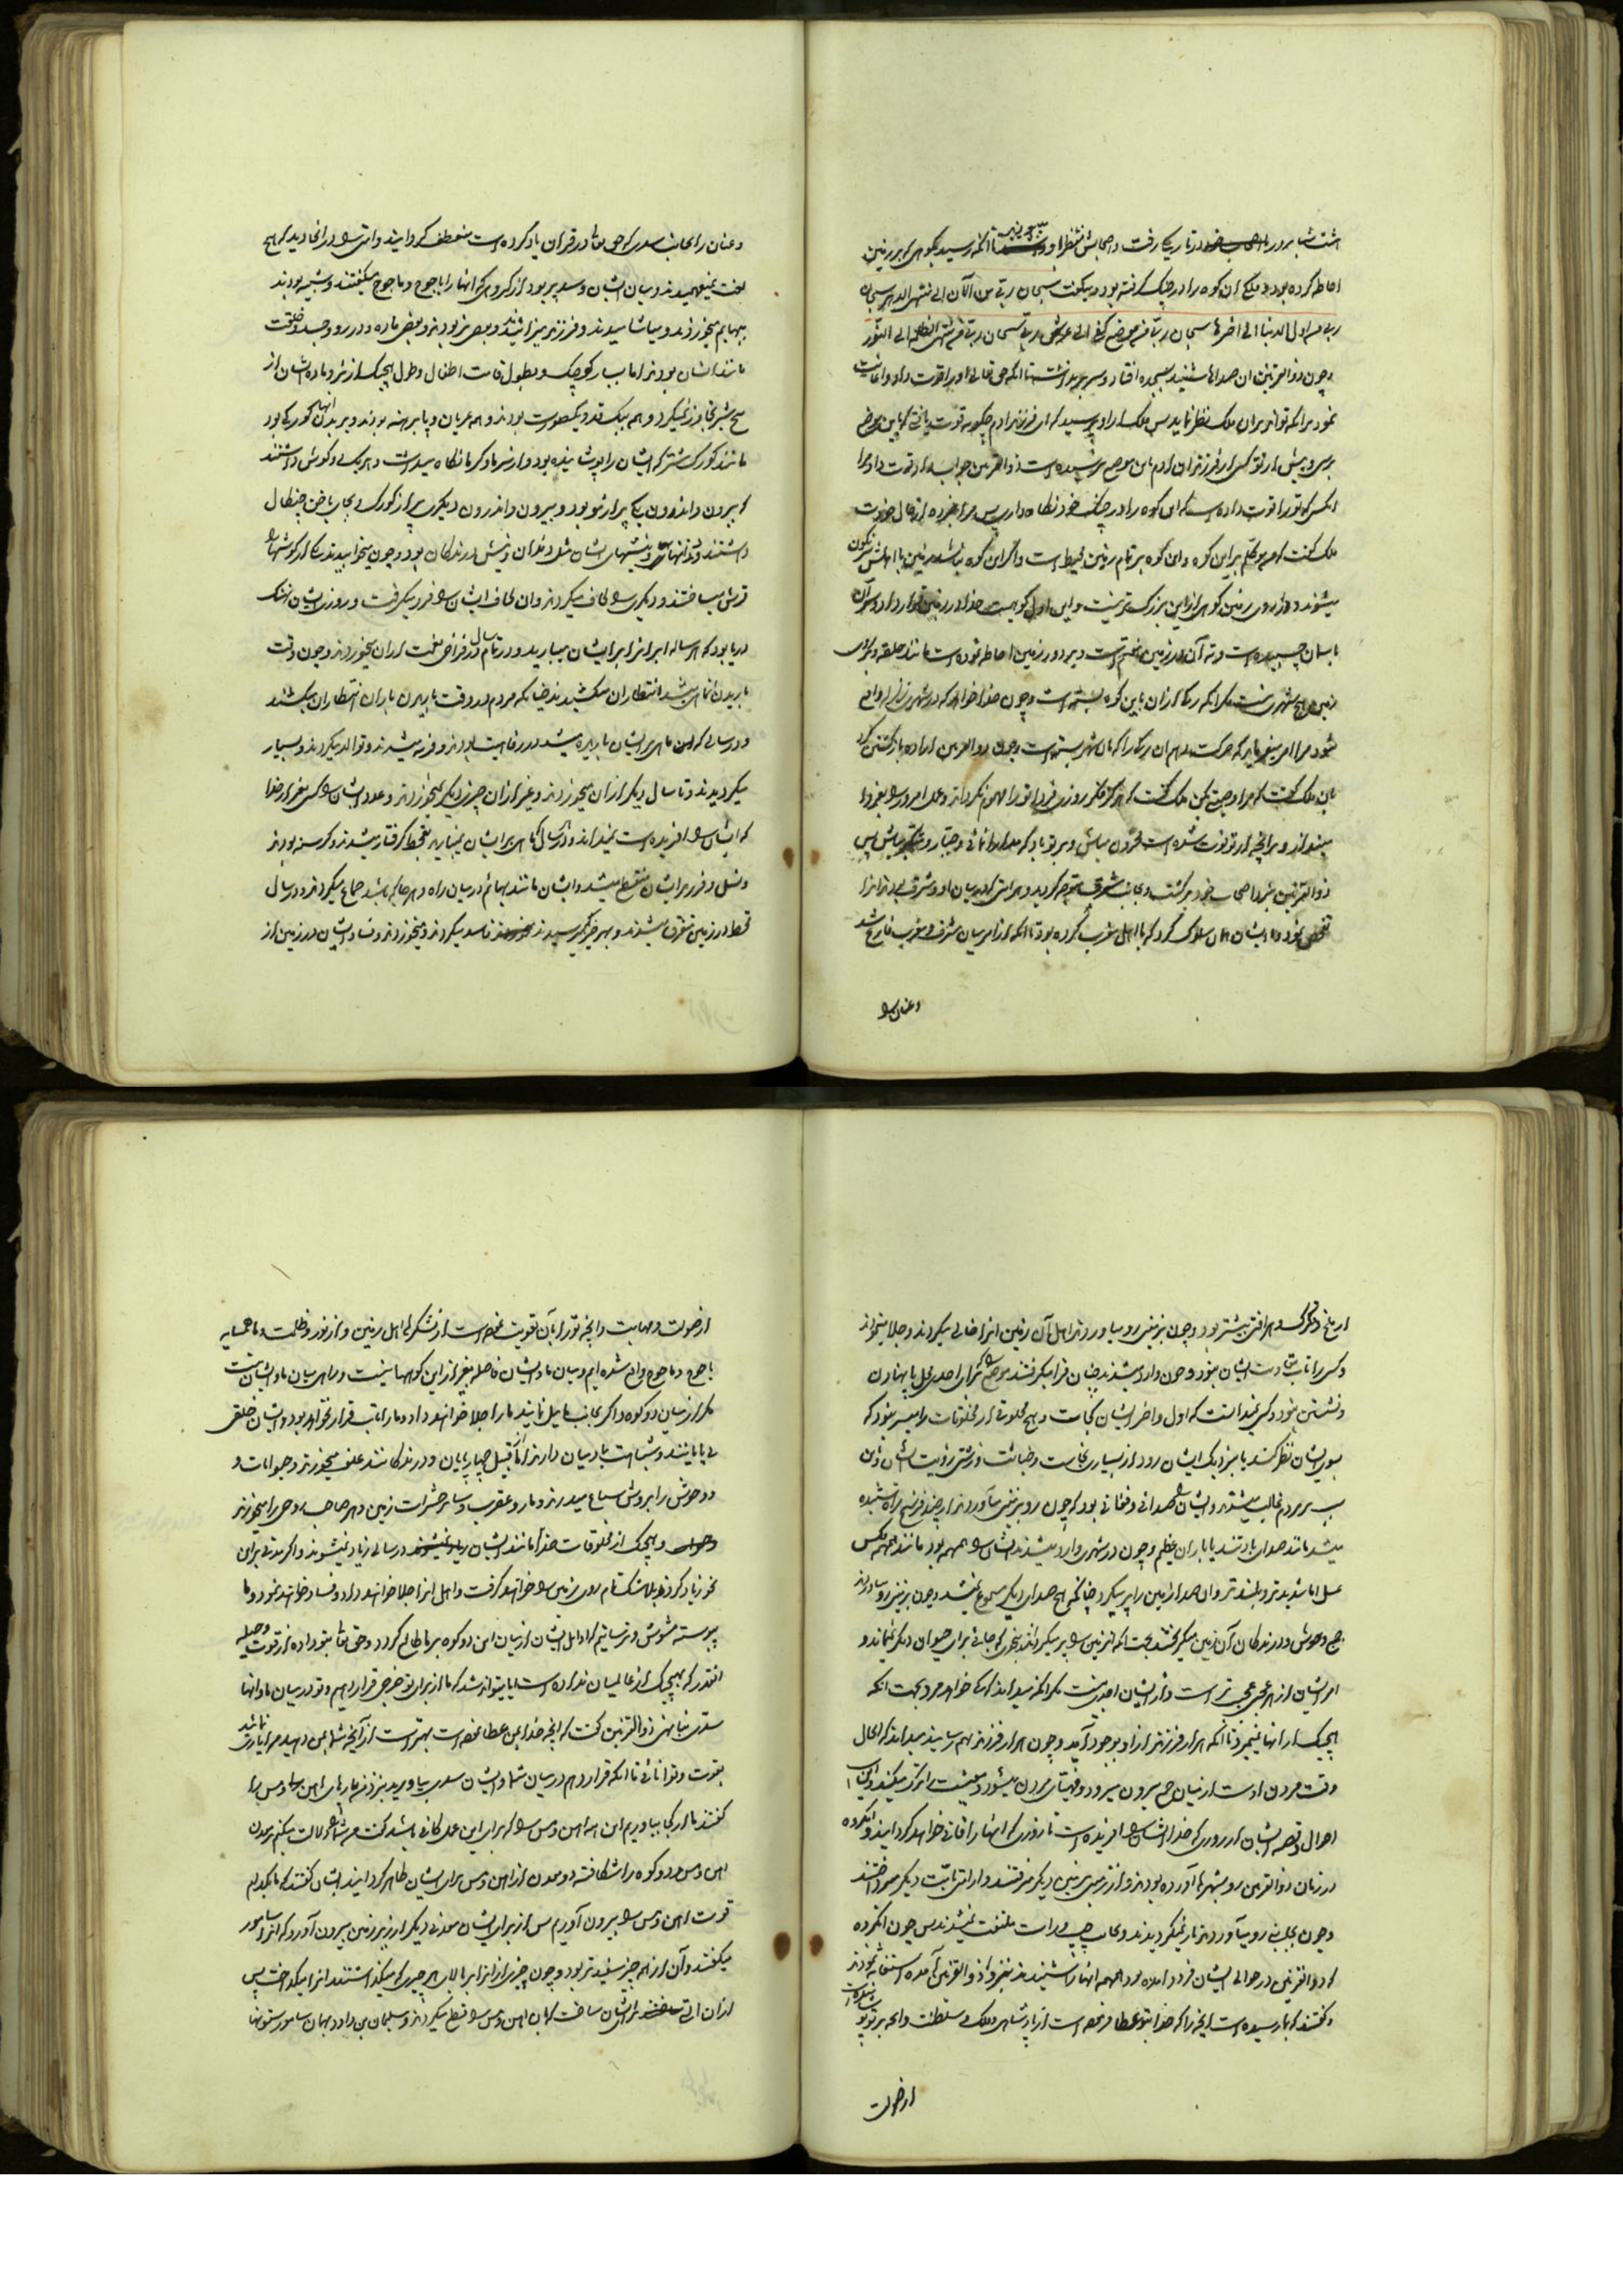 هشت شبانه روز با اصحاب خود در تاریکی رفت و اصحابش منتظر او بودند تا آنکه رسید بکوهی که بر زمین
احاطه کرده بود و ملکی آن کوه را در چنک گرفته بود و میگفت سبحان ربی من الآن الی منتهی الدهر سبحان
ربی من اول الدنیا الی آخرها سبحان ربی من موضع کفی الی عرش ربی سبحان ربی من منتهی الظلمه الی النور
و چون ذوالقرنین آن صدا را شنید بسجده افتاد و سر بر نداشت تا آنکه حق تعالی او را قوت داد و اعانت
نمود بر آنکه تواند بر آن ملک نظر نماید پس ملک او را پرسید که ای فرزند آدم چگونه قوت یافتی که باین موضع
برسی و پیش از تو کسی از فرزندان آدم باین موضع نرسیده است ذوالقرنین جواب داد که قوت داد مرا
آنکس که تو را قوت داده است که این کوه را در چنک خود نگاه داری پس مرا خبر ده از حال خودت
ملک گفت که من موکلم بر این کوه و این کوه بر تمام زمین محیط است و اگر این کوه نباشد زمین با اهلش سرنگون
میشوند و در روی زمین کوهی از این بزرگ‌تر نیست و این اول کوهیست که خدا در زمین قرار داد و سر آن
باسمان چسبیده است و ته آن در زمین هفتم است و بر دور زمین احاطه نموده است مانند حلقه و بر روی
زمین هیچ شهری نیست مگر آنکه رگی از آن باین کوه بسته است و چون خدا خواهد که در شهری زلزله واقع
شود مرا امر میفرماید که حرکت دهم آن رگ را که بآن شهر بسته است و چون ذوالقرنین اراده بازگشتن کرد
بآن ملک گفت که مرا وصیتی بکن ملک گفت که هرگز فکر روزی فردا تو را مهموم نگرداند و عمل امروز را بفردا
مینداز و بر آنچه از تو فوت شده است محزون مباش و بر تو باد که مدارا نمائی و جبار و متکبر مباش پس
ذوالقرنین نزد اصحاب خود برگشت و بجانب مشرق متوجه گردید و هر امتی که در میان او و مشرق بودند آنها را
تفحص نمود و با ایشان همان سلوک کرد که با اهل مغرب کرده بود تا آنکه از ما بین مشرق و مغرب فارغ شد
و عنان را
و عنان را بجانب سدی که حق تعالی در قرآن یاد کرده است منعطف گردانید و امتی را در آنجا دید که هیچ
لغت نمیفهمیدند و میان ایشان و سد پر بود از گروهی که آنها را یاجوج و ماجوج میگفتند و شبیه بودند
ببهایم میخوردند و میاشامیدند و فرزند میزائیدند و بعضی نر بودند و بعضی ماده و در رو و جسد و خلقت
مانند انسان بودند اما بسیار کوچک و بطول قامت اطفال و طول هیچیک از نر و ماده ایشان از
پنج شبر تجاوز نمیکرد و همه بیک قد و یکصورت بودند و همه عریان و پا برهنه بودند و بر بدن آنها کورکی بود
مانند کورک شتر که ایشان را پوشانیده بود و از سرما و گرما نگاه میداشت و هر یک دو گوش داشتند
که بیرون و اندرون یکی پر از مو بود و بیرون و اندرون دیگری پر از کورک و بجای ناخن چنگال
داشتند و دندانها و نیشهای ایشان مثل دندان و نیش درندگان بود و چون میخوابیدند یکی از گوشها را
فرش میساختند و دیگری را لحاف میکردند و آن لحاف ایشان را فرو میگرفت و روزی ایشان نهنگ
دریا بود که هر ساله ابر از برای ایشان میبارید و در تمام سال در فراخی نعمت از آن میخوردند و چون وقت
باریدن آنها میشد انتظار آن میکشیدند چنانکه مردم در وقت باریدن باران انتظار آن میکشند
و در سالی که این ماهی بر ایشان باریده میشد در رفاهیت بودند و فربه میشدند و توالد میکردند و بسیار
میگردیدند و تا سال دیگر از آن میخوردند و بغیر از آن چیز دیگر نمیخوردند و عدد ایشان را کسی بغیر از خدا
که ایشان را آفریده است نمیداند و در سال که ماهی بر ایشان نمیبارید بقحط گرفتار میشدند و گرسنه بودند
و نسل و فرزند ایشان منقطع میشد و ایشان مانند بهائم در میان راه و هر جا که باشد جماع میکردند و در سال
قحط در زمین متفرق میشدند و بهر چیز که میرسیدند فاسد میکردند و میخوردند و فساد ایشان در زمین از
از ملخ و تگرگ و هر آفتی بیشتر بود و چون بزمینی رو میاوردند اهل آن زمین آنرا خالی میکردند و جلا مینمودند
و کسی را تاب مقاومت ایشان نبود و چون وارد میشدند چنان فرا میگرفتند موضع را که برای احدی محل پا نهادن
و نشستن نبود و کسی نمیدانست که اول و آخر ایشان کجاست و هیچ مخلوقی از مخلوقات را میسر نبود که
بسوی ایشان نظر کند یا بنزدیک ایشان رود از بسیاری نجاست و خباثت و زشتی رؤیت ایشان و باین
سبب بر مردم غالب میشدند و ایشان را صدائی و فغانی بود که چون رو بزمینی میآوردند از چند فرسخ راه شنیده
میشد مانند صدای باد تند یا باران عظیم و چون در شهری وارد میشدند ایشان را همهمه بود مانند همهمه مکس
عسل اما شدیدتر و بلندتر و آن صدا زمین را پر میکرد چنانکه هیچ صدای دیگر مسموع نمیشد و چون بزمینی رو میاوردند
جمیع وحوش و درندگان آن زمین میگریختند بجهت آنکه آن زمین را پر میکردند بنحوی که جائی برای حیوان دیگر نمیماند و
امر ایشان از هر عجیبی عجیب تر است و از ایشان احدی نیست مگر آنکه میداند که کی خواهد مرد بجهت آنکه
هیچیک از آنها نمیمیرد تا آنکه هزار فرزند از او بوجود آید و چون هزار فرزند بهم رسانید میداند که الحال
وقت مردن اوست از میان جمع بیرون میرود و مهیای مردن میشود و معیشت را ترک میکند و این است
احوال و قصه ایشان از روزی که خدا ایشان را آفریده است تا روزی که آنها را فانی خواهد گردانید و آن گروه
در زمان ذوالقرنین رو بشهرها آورده بودند و از زمینی بزمین دیگر میرفتند و از امتی بامت دیگر میپرداختند
و چون بجانبی رو میآوردند باز نمیگردیدند و بجانب چپ و راست ملتفت نمیشدند پس چون آنگروه
که ذوالقرنین در حوالی ایشان فرود آمده بود همهمه آنها را شنیدند بنزد ذوالقرنین آمده استغاثه نمودند
و گفتند که بما رسیده است آنچه را که خدا بتو عطا فرموده است از پادشاهی و ملک و سلطنت و آنچه بر تو پوشانیده است
از صولت
از صولت و مهابت و آنچه تو را بآن تقویت نموده است از لشکرهای اهل زمین و از نور و ظلمت و ما همسایه
یاجوج و ماجوج واقع شده ایم و میان ما و ایشان فاصله بغیر از این کوهها نیست و راهی میان ما و ایشان نیست
مگر از میان دو کوه و اگر بجانب ما میل نمایند ما را جلا خواهند داد و ما را تاب قرار نخواهد بود و ایشان خلق
بی پایانند و شباهت بآدمیان دارند اما از قبیل چهارپایان و درندگانند علف میخورند و حیوانات و
وحوش را بروش سباع میدرند و مار و عقرب و سایر حشرات زمین و هر صاحب روحی را میخورند
و هیچیک از مخلوقات خدا مانند ایشان در سالی زیاد نمیشوند و اگر مدتی بر این
نحو زیاد کردند بلا شک تمام روی زمین را خواهند گرفت و اهل آنرا جلا خواهند داد و فساد خواهند نمود و ما
پیوسته مشوش و ترسانیم که اوایل ایشان از میان این دو کوه بر ما ظاهر گردد و حق تعالی بتو داده از قوت و حیله
آنقدر که بهیچیک از عالمیان نداده است آیا میتواند شد که ما از برای تو خرجی قرار دهیم و تو در میان ما و آنها
سدی بنا نهی ذوالقرنین گفت که آنچه خدا بمن عطا نموده است بهتر است از آنچه شما بمن دهید مرا یاری نمائید
بقوت و توانائی تا آنکه قرار دهم در میان شما و ایشان سدی بیاورید بنزد من پارهای آهن و مس را
گفتند ما از کجا بیاوریم این همه آهن و مس را که برای این عمل کافی باشد گفت من شما را دلالت میکنم بر معدن
آهن و مس و دو کوه را شکافته دو معدن از آهن و مس برای ایشان ظاهر گردانید ایشان گفتند که ما بکدام
قوت آهن و مس را بیرون آوریم پس از برای ایشان معدنی دیگر از زیر زمین بیرون آورد که آنرا سامور
میگفتند و آن از همه چیز سفیدتر بود و چون چیزی از آنرا بر بالای هر چیزی که میگذاشتند آنرا میگداخت پس
از آن آلتی برای ایشان ساخت که بآن آهن و مس را قطع میکردند و سلیمان بن داود بهمان سامور ستونها